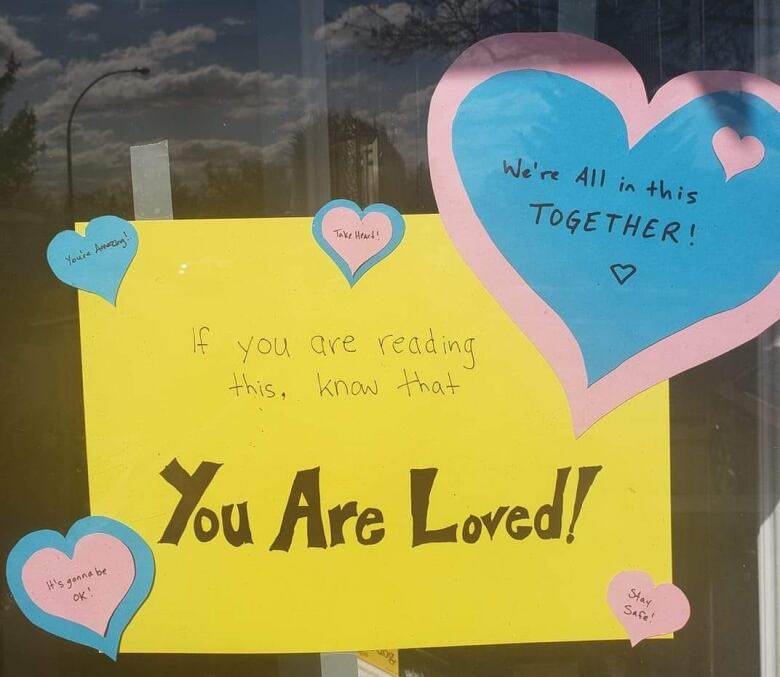 We're All in this
TOGETHER!
You're Amazing!
Take Heart!
If you are reading
this, know that
You Are Loved!
It's gonna be
OK!
Stay
Safe!